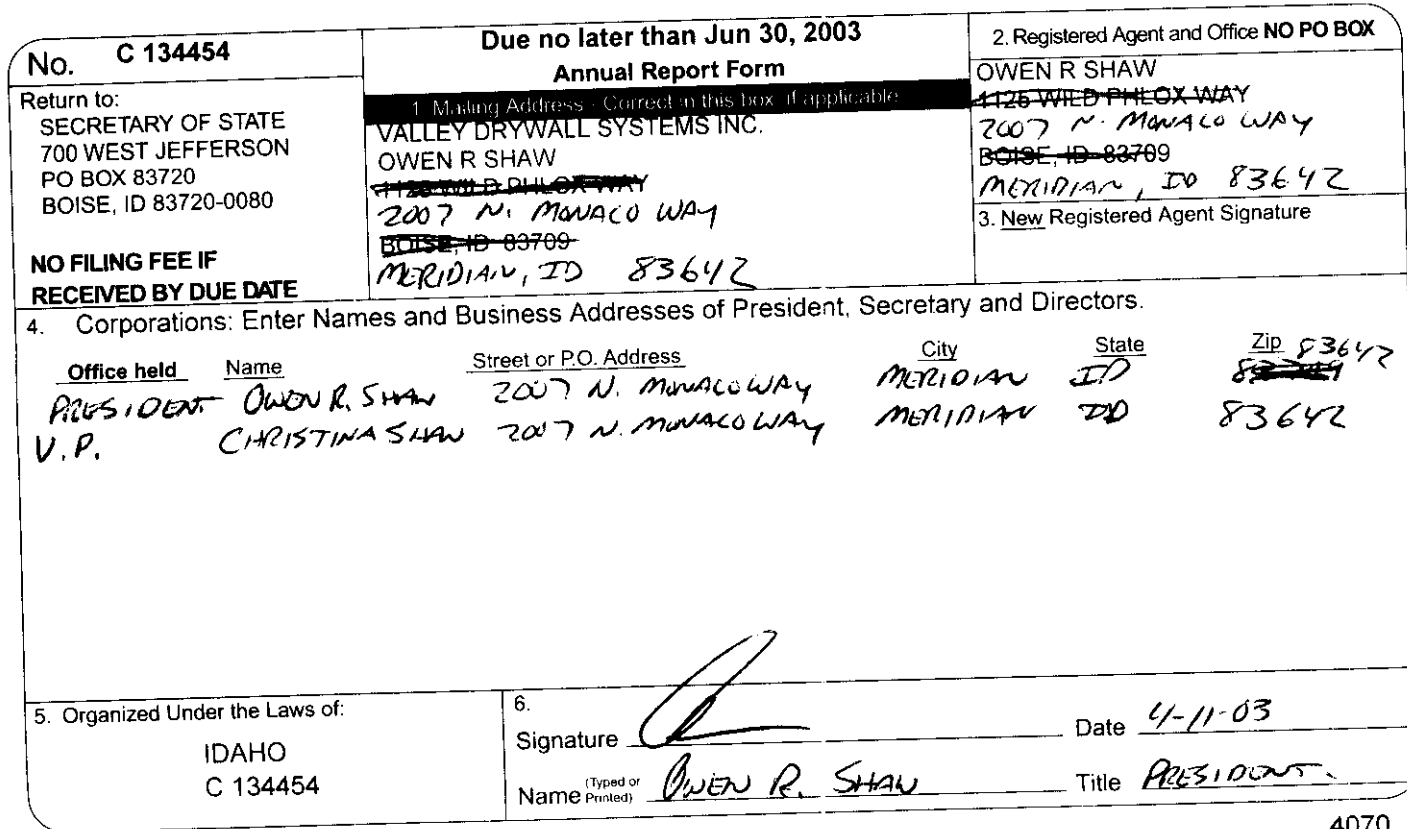 No. C 134454
Return to:
SECRETARY OF STATE
700 WEST JEFFERSON
PO BOX 83720
BOISE, ID 83720-0080
NO FILING FEE IF
RECEIVED BY DUE DATE
Due no later than Jun 30, 2003
Annual Report Form
1. Mailing Address - Correct in this box, if applicable
VALLEY DRYWALL SYSTEMS INC.
OWEN R SHAW
1125 WILD PHLOX WAY
2007 N. MONACO WAY
BOISE, ID 83709
MERIDIAN, ID 83642
2. Registered Agent and Office NO PO BOX
OWEN R SHAW
1125 WILD PHLOX WAY
2007 N. MONACO WAY
BOISE, ID 83709
MERIDIAN, ID 83642
3. New Registered Agent Signature
4. Corporations: Enter Names and Business Addresses of President, Secretary and Directors.
Office held Name Street or P.O. Address City State Zip
PRESIDENT OWEN R. SHAW 2007 N. MONACO WAY MERIDIAN ID 83642
V.P. CHRISTINA SHAW 2007 N. MONACO WAY MERIDIAN ID 83642
5. Organized Under the Laws of:
IDAHO
C 134454
6.
Signature Date 4-11-03
Name (Typed or Printed) OWEN R. SHAW Title PRESIDENT.
4070